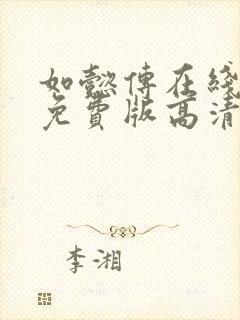 如懿傳在綫
免費版高清
李湘